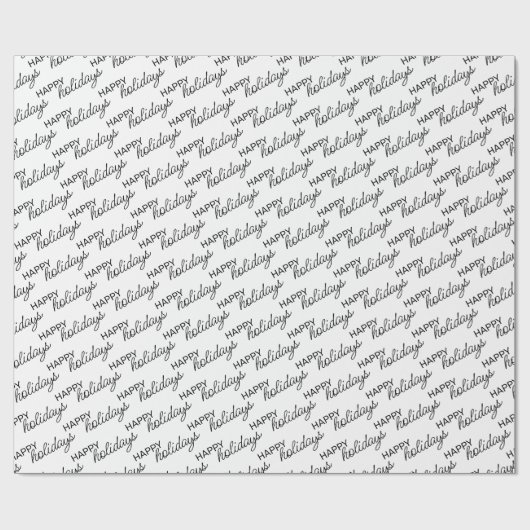 HAPPY
holidays